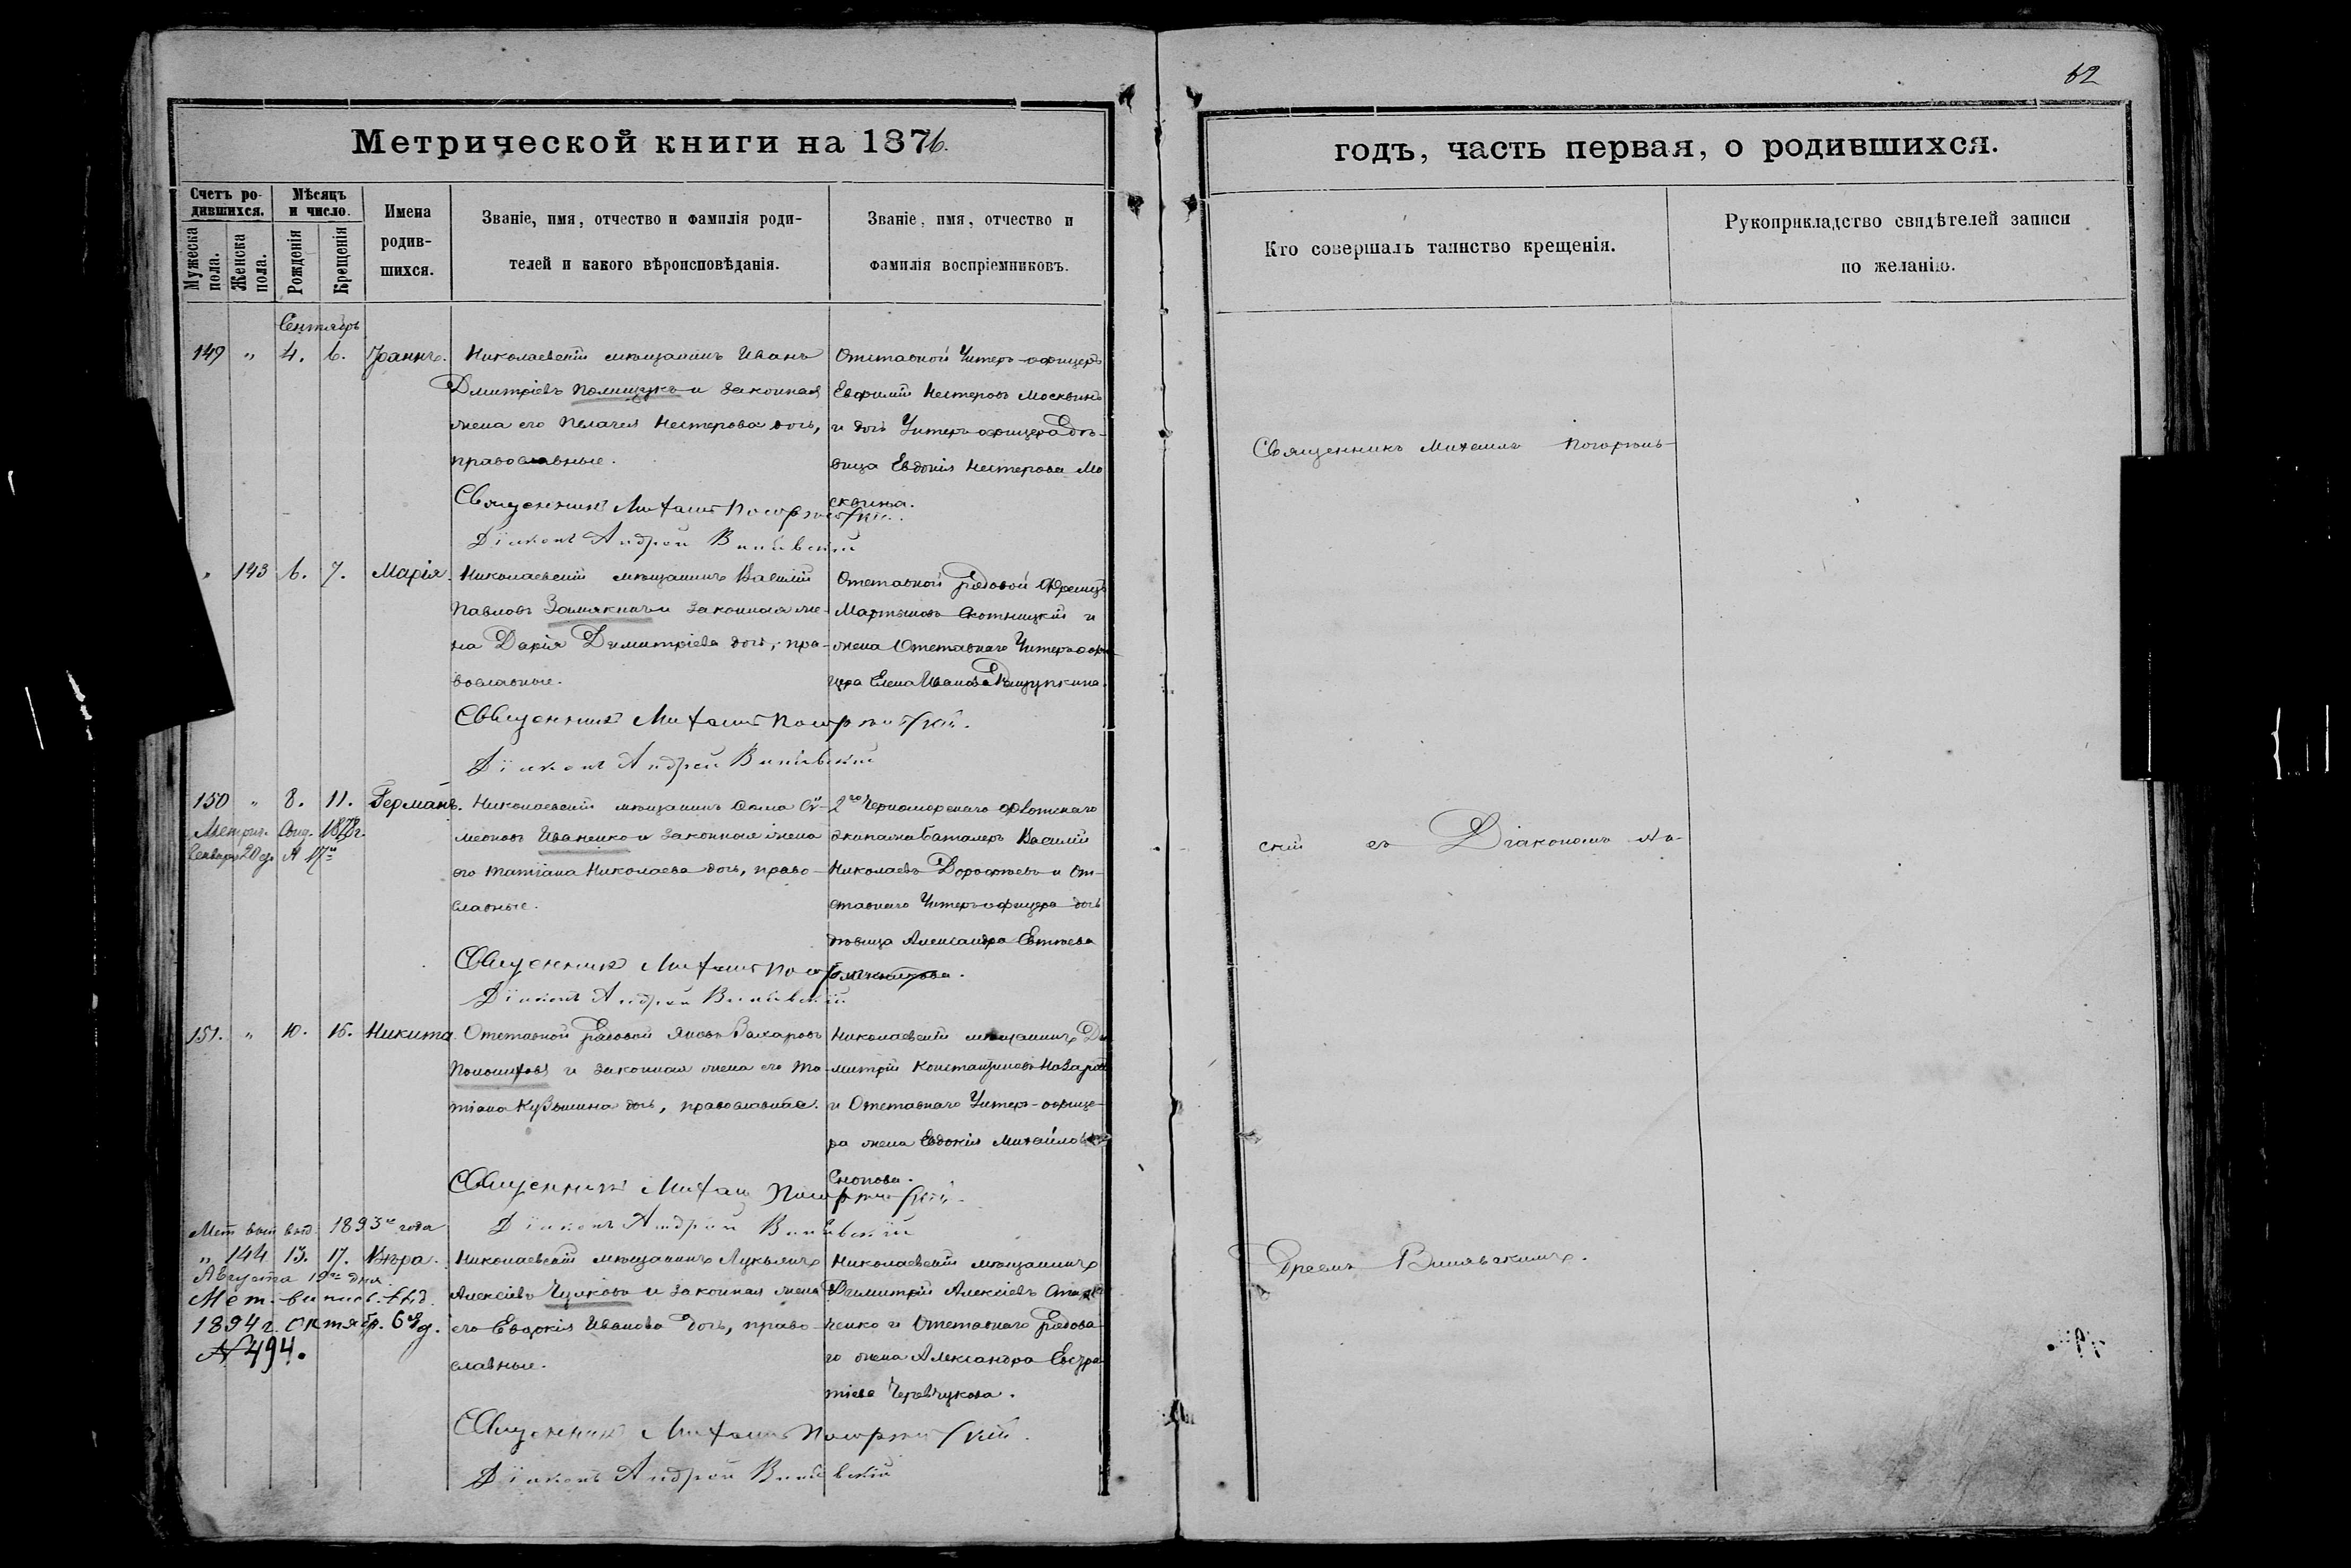 62
Метрической книги на 1876.
годъ, часть первая, о родившихся.
Счетъ ро-
дившихся.
Мужеска пола.
Женска пола.
Мѣсяцъ
и число.
Рожденія
Крещенія
Имена
родив-
шихся.
Званіе, имя, отчество и фамилія роди-
телей и какого вѣроисповѣданія.
Званіе, имя, отчество и
фамилія воспріемниковъ.
Кто совершалъ таинство крещенія.
Рукоприкладство свидѣтелей записи
по желанію.
Сентябрь
149 " 4. 6. Іоаннъ.
Николаевскій мѣщанинъ Иванъ
Дмитріевъ Полищукъ и законная
жена его Пелагея Нестерова дочь,
православные.
Священникъ Михаилъ Погорѣльскій.
Діаконъ Андрей
Отставной Унтеръ-офицеръ
Евфимій Нестеровъ Москвинъ
и дочь Унтеръ-офицера дѣ-
вица Евдокія Нестерова Мо
сквина.
" 143 6. 7. Марія.
Николаевскій мѣщанинъ Василій
Павловъ и законная же-
на Дарія Димитріева дочь, пра-
вославные.
Священникъ Михаилъ Погорѣльскій.
Діаконъ Андрей
Отставной рядовой Францъ
Мартыновъ Скотницкій и
жена Отставнаго Унтеръ-офи
цера Елена Иванова
150 " 8. 11. Германъ.
Метрич. 1878 г.
Января 20 д. № 17
Николаевскій мѣщанинъ Ѳома Сѵ-
меоновъ Иваненко и законная жена
его Татіана Николаева дочь, право-
славные.
Священникъ Михаилъ
Діаконъ Андрей
2го Черноморскаго флотскаго
экипажа Баталеръ Василій
Николаевъ Дорофѣевъ и От-
ставнаго Унтеръ-офицера дочь
дѣвица Александра Евтѣева
151. " 10. 15. Никита.
Отставной рядовой Яковъ Захаровъ
и законная жена его Та-
тіана Кузьмина дочь, православные.
Священникъ Михаилъ Погорѣльскій.
Діаконъ Андрей
Николаевскій мѣщанинъ Ди
митрій Константиновъ
и Отставнаго Унтеръ-офице-
ра жена Евдокія Михайлова
Снопова.
Мет. вып. выд. 1893 года
" 144 13. 17. Вѣра.
Августа 19 дня.
Мет. выпись. выд.
1894 г. октябр. 6 д.
№ 494.
Николаевскій мѣщанинъ Лукьянъ
Алексѣевъ Чумковъ и законная жена
его Евдокія Иванова дочь, право-
славные.
Священникъ Михаилъ Погорѣльскій.
Діаконъ Андрей
Николаевскій мѣщанинъ
Димитрій Алексѣевъ
ченко и Отставнаго рядова-
го жена Александра Евстра-
тіева
Священникъ Михаилъ Погорѣль-
скій съ Діакономъ Ан-
дреемъ